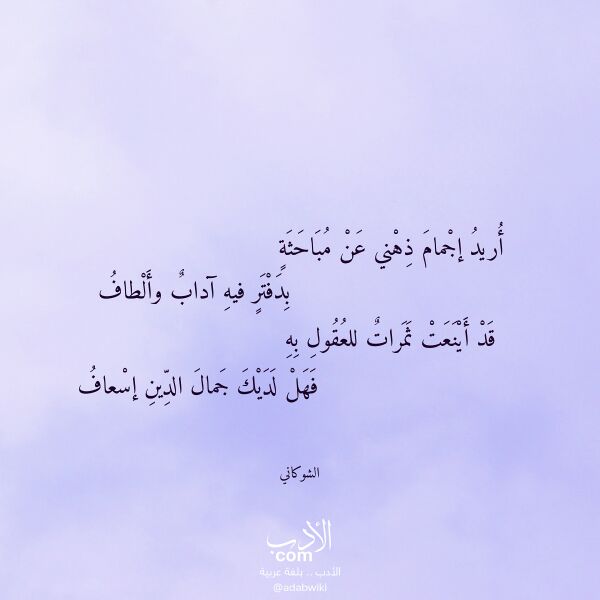 أُريدُ إجْمامَ ذِهْني عَنْ مُبَاحَثَةٍ
بِدَفْتَرٍ فيهِ آدابٌ وأَلْطافُ
قَدْ أَيْنَعَتْ ثَمَراتٌ للعُقُولِ بِهِ
فَهَلْ لَدَيْكَ جَمالَ الدِّينِ إسْعافُ
الشوكاني
الأدب
com
الأدب .. بلغة عربية
@adabwiki